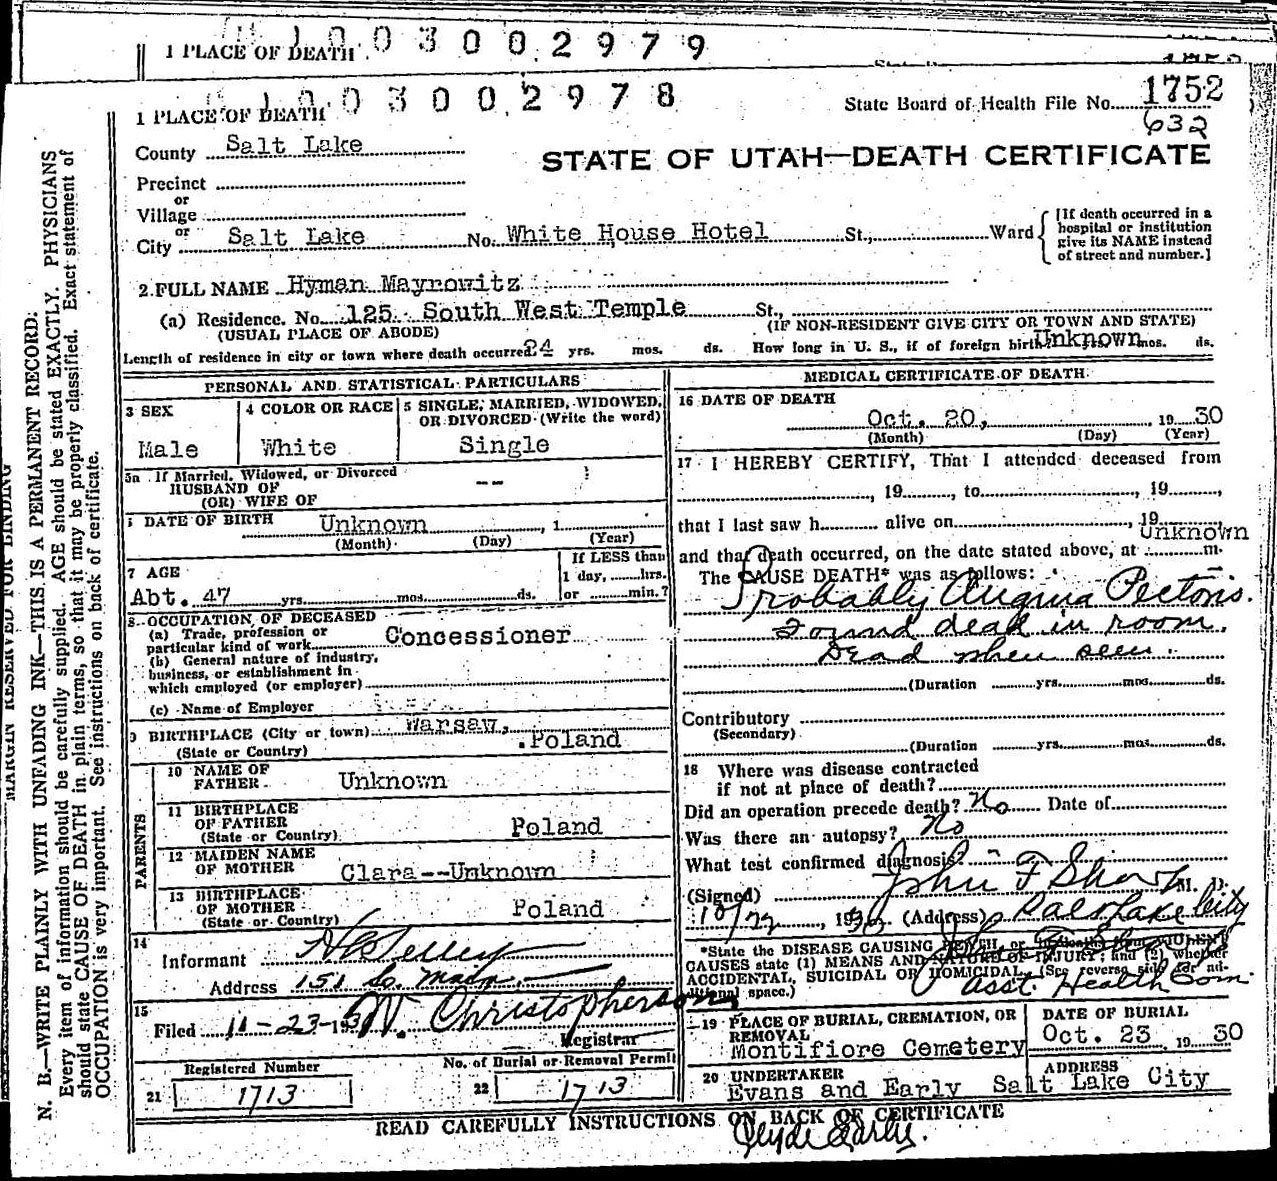 1 PLACE OF DEATH 1 0 0 3 0 0 2 9 7 9
1 0 0 3 0 0 2 9 7 8
1 PLACE OF DEATH
State Board of Health File No. 1752
632
County Salt Lake
STATE OF UTAH—DEATH CERTIFICATE
Precinct
or
Village
or
City Salt Lake No. White House Hotel St., Ward
[If death occurred in a
hospital or institution
give its NAME instead
of street and number.]
2. FULL NAME Hyman Mayrowitz
(a) Residence. No. 125 South West Temple St.,
(USUAL PLACE OF ABODE) (IF NON-RESIDENT GIVE CITY OR TOWN AND STATE)
Length of residence in city or town where death occurred 24 yrs. mos. ds. How long in U. S., if of foreign birth Unknown mos. ds.
PERSONAL AND STATISTICAL PARTICULARS
3 SEX
Male
4 COLOR OR RACE
White
5 SINGLE, MARRIED, WIDOWED,
OR DIVORCED (Write the word)
Single
5a If Married, Widowed, or Divorced
HUSBAND OF
(OR) WIFE OF --
DATE OF BIRTH Unknown , 1
(Month) (Day) (Year)
7 AGE
Abt. 47 yrs. mos. ds.
If LESS than
1 day, hrs.
or min.?
8 OCCUPATION OF DECEASED
(a) Trade, profession or
particular kind of work Concessioner
(b) General nature of industry,
business, or establishment in
which employed (or employer)
(c) Name of Employer
9 BIRTHPLACE (City or town) Warsaw,
(State or Country) Poland
PARENTS
10 NAME OF
FATHER Unknown
11 BIRTHPLACE
OF FATHER
(State or Country) Poland
12 MAIDEN NAME
OF MOTHER Clara--Unknown
13 BIRTHPLACE
OF MOTHER
(State or Country) Poland
14
Informant
Address 151 So. Main
15
Filed 11-23-193 W. Christopherson
Registrar
Registered Number
21 1713
No. of Burial or Removal Permit
22 1713
MEDICAL CERTIFICATE OF DEATH
16 DATE OF DEATH
Oct. 20, 19 30
(Month) (Day) (Year)
17 I HEREBY CERTIFY, That I attended deceased from
, 19 , to , 19 ,
that I last saw h alive on , 19
Unknown
and that death occurred, on the date stated above, at m.
The CAUSE DEATH* was as follows:
Probably Angina Pectoris.
Found dead in room.
Dead when seen.
(Duration yrs. mos. ds.
Contributory
(Secondary)
(Duration yrs. mos. ds.
18 Where was disease contracted
if not at place of death?
Did an operation precede death? No Date of
Was there an autopsy? No
What test confirmed diagnosis? -
(Signed) John F Sharp M. D.
10/22, 1930 (Address) Salt Lake City
*State the DISEASE CAUSING DEATH, or in deaths from VIOLENT
CAUSES state (1) MEANS AND NATURE OF INJURY; and (2) whether
ACCIDENTAL, SUICIDAL OR HOMICIDAL. (See reverse side for ad-
ditional space.)
Asst. Health Com
19 PLACE OF BURIAL, CREMATION, OR
REMOVAL
Montifiore Cemetery
DATE OF BURIAL
Oct. 23 , 19 30
20 UNDERTAKER
Evans and Early
ADDRESS
Salt Lake City
READ CAREFULLY INSTRUCTIONS ON BACK OF CERTIFICATE
Clyde Early.
MARGIN RESERVED FOR BINDING
N. B.—WRITE PLAINLY WITH UNFADING INK—THIS IS A PERMANENT RECORD.
Every item of information should be carefully supplied. AGE should be stated EXACTLY. PHYSICIANS
should state CAUSE OF DEATH in plain terms, so that it may be properly classified. Exact statement of
OCCUPATION is very important. See instructions on back of certificate.